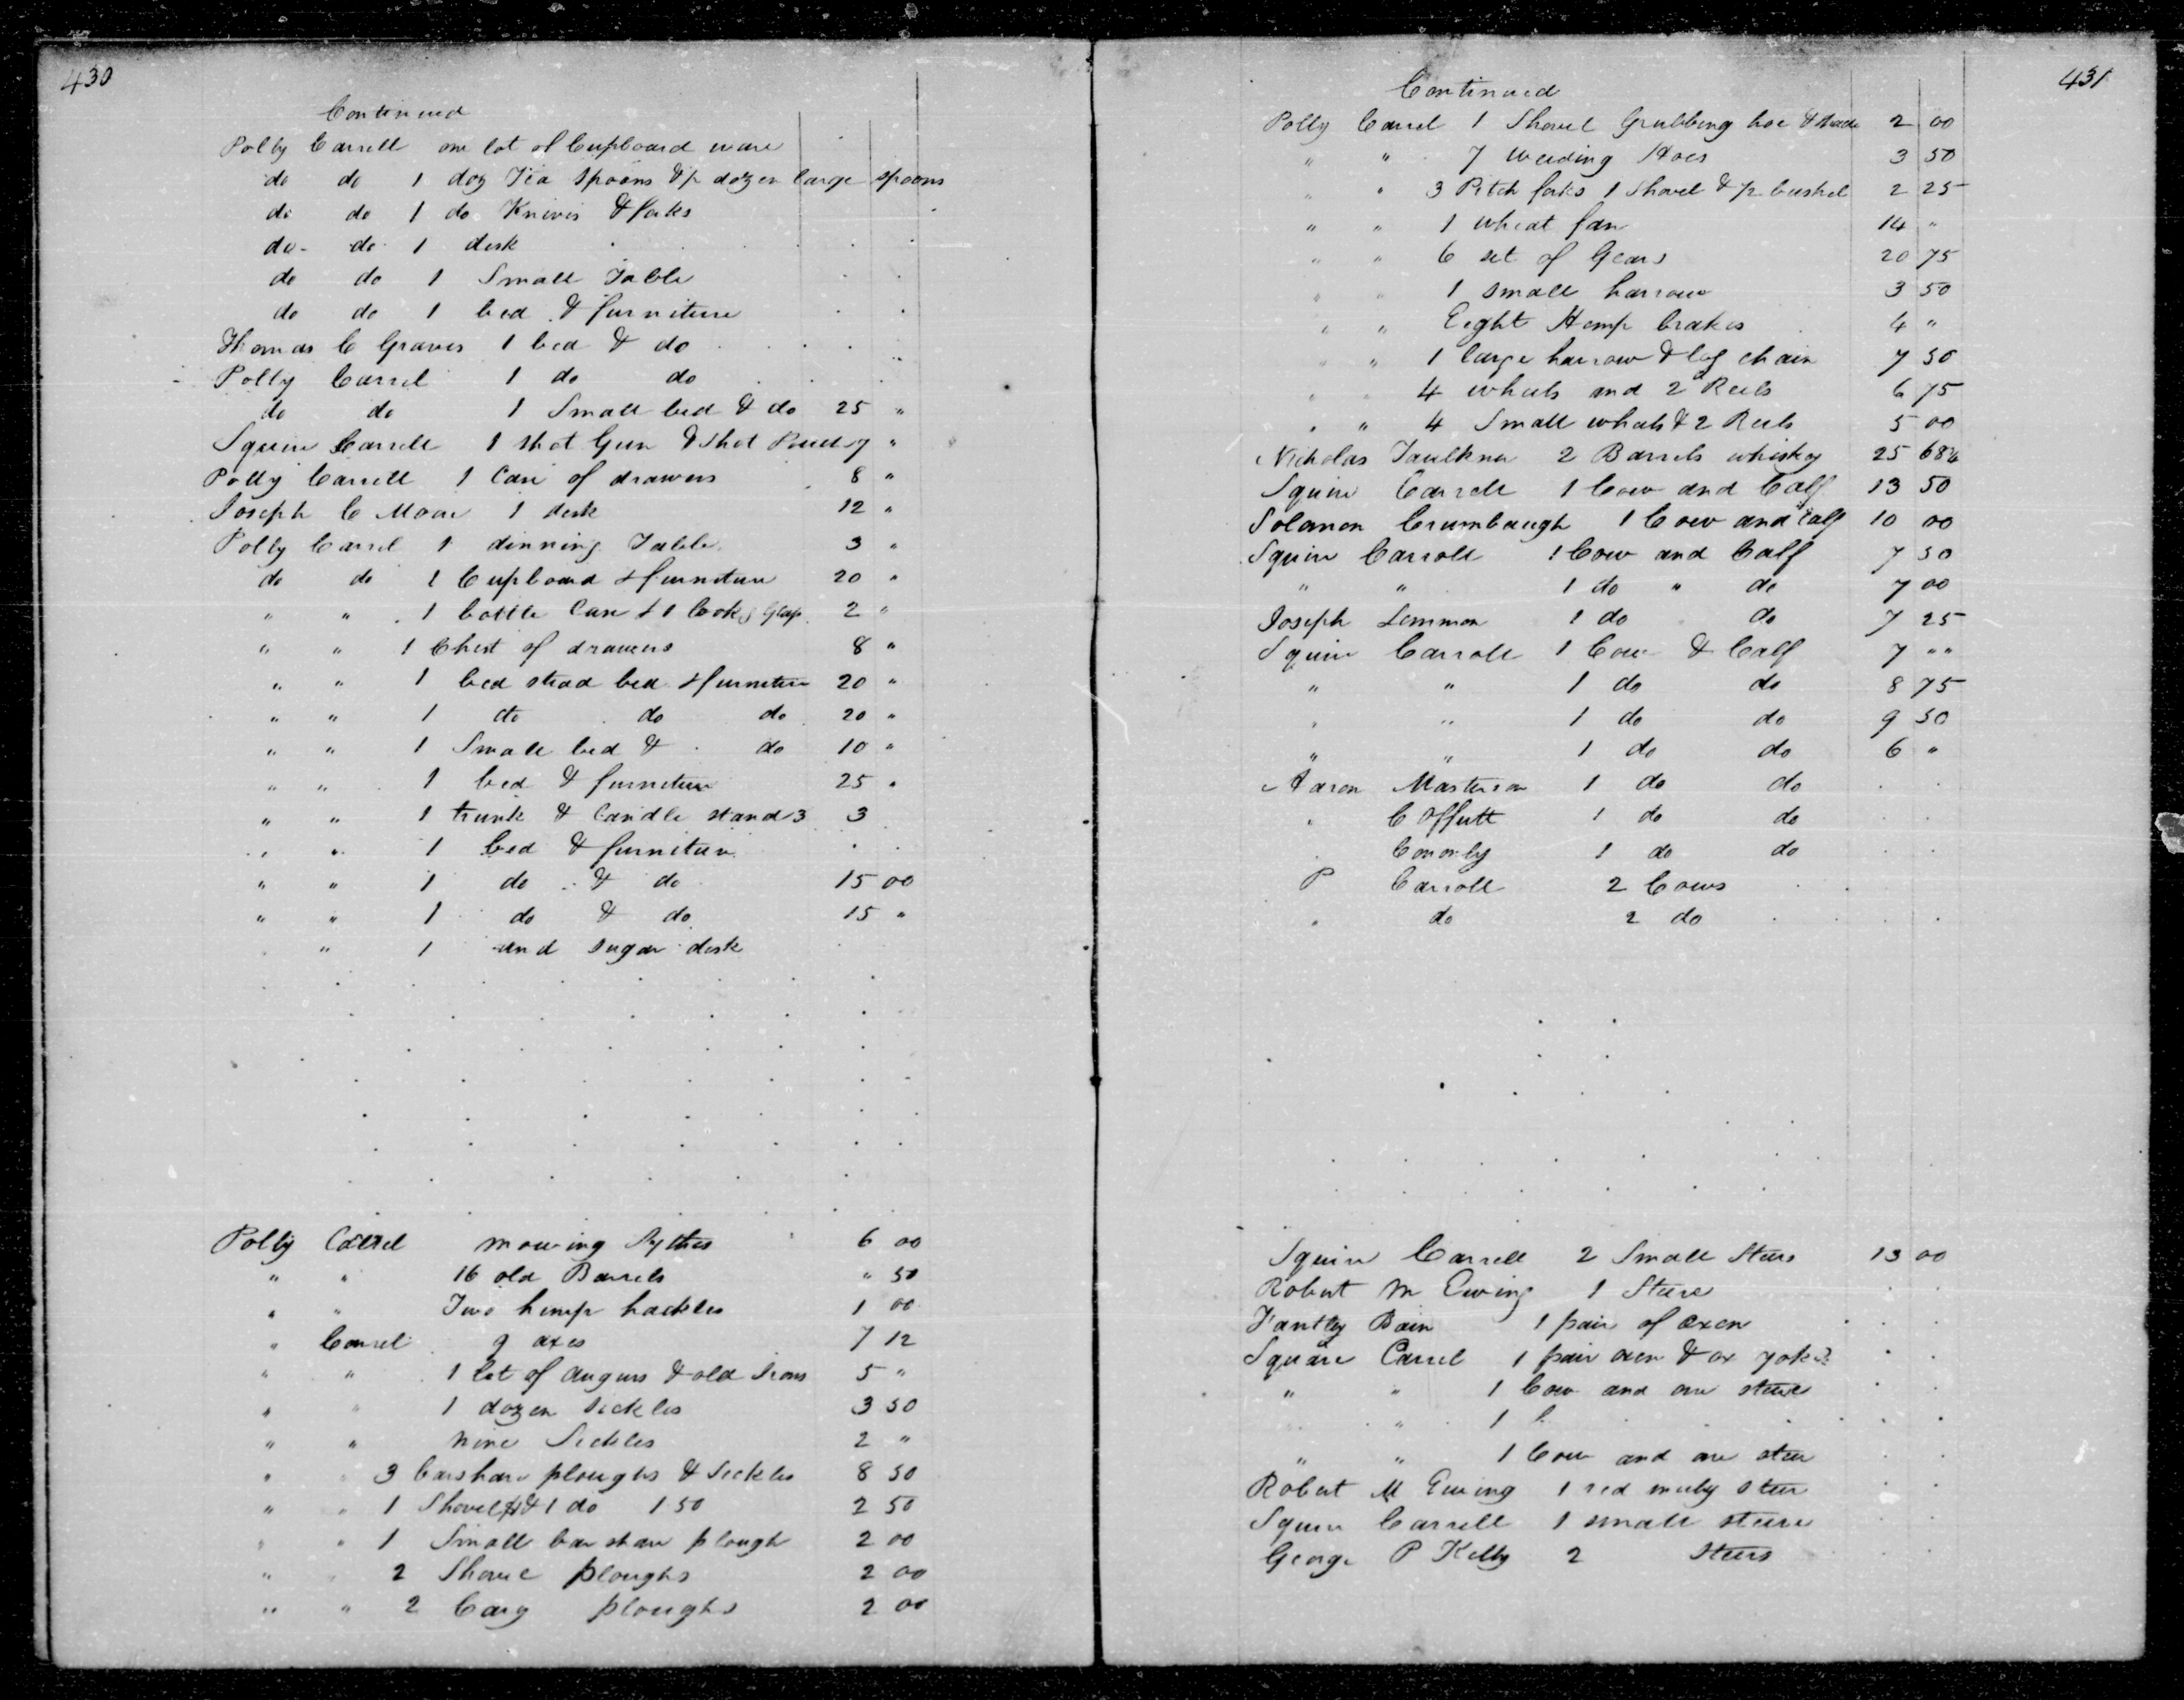 430
Continued
Polly Carrell one lot of Cupboard ware
do do 1 doz Tea Spoons & dozen large spoons
do do 1 do Knives & forks
do do 1 desk
do do 1 Small Table
do do 1 bed & furniture
Thomas C Graves 1 bed & do
Polly Carrel 1 do do
do do 1 Small bed & do 25 "
Squire Carrell 1 Shot Gun & Shot 7 "
Polly Carrell 1 Case of drawers 8 "
Joseph C Moore 1 desk 12 "
Polly Carrel 1 dinning Table 3 "
do do 1 Cupboard & furniture 20 "
" " 1 bottle Case & 1 Glass 2 "
" " 1 Chest of drawers 8 "
" " 1 bed stead bed & furniture 20 "
" " 1 do do do 20 "
" " 1 Small bed & do 10 "
" " 1 bed & furniture 25 "
" " 1 trunk & Candle stand 3 3
" " 1 bed & furniture
" " 1 do & do 15 00
" " 1 do & do 15 "
" 1 and sugar desk
Polly Carrel mowing Sythes 6 00
" " 16 old Barrels " 50
" " Two hemp hackles 1 00
" Carrel 9 axes 7 12
" " 1 lot of augurs & old Irons 5 "
" " 1 dozen sickles 3 50
" " nine Sickles 2 "
" " 3 barshare ploughs & Sickles 8 50
" " 1 Shovel & 1 do 1 50 2 50
" " 1 Small bar share plough 2 00
" " 2 Shovel ploughs 2 00
" " 2 Cary ploughs 2 00
431
Continued
Polly Carrel 1 Shovel Grubbing hoe & 2 00
" " 7 weeding Hoes 3 50
" " 3 Pitch forks 1 Shovel & bushel 2 25
" " 1 wheat fan 14 "
" " 6 set of Gears 20 75
" " 1 small harrow 3 50
" " Eight Hemp brakes 4 "
" " 1 large harrow & log chain 7 50
" " 4 wheels and 2 Reels 6 75
" " 4 Small wheels & 2 Reels 5 00
Nicholas Faulkner 2 Barrels whiskey 25 68¾
Squire Carrell 1 Cow and Calf 13 50
Solomon Crumbaugh 1 Cow and Calf 10 00
Squire Carroll 1 Cow and Calf 7 50
" " 1 do " do 7 00
Joseph Lemmon 1 do do 7 25
Squire Carroll 1 Cow & Calf 7 " "
" " 1 do do 8 75
" " 1 do do 9 50
" " 1 do do 6 "
Aaron Masterson 1 do do
" C Offutt 1 do do
Conorly 1 do do
P Carroll 2 Cows
" do 2 do
Squire Carrell 2 Small Steers 13 00
Robert M Ewing 1 Steere
Bain 1 pair of oxen
Square Carrel 1 pair oxen & ox yoke
" " 1 Cow and one steere
" 1
" " 1 Cow and one steer
Robert M Ewing 1 red muly steer
Squire Carrell 1 small steere
George P Kelly 2 Steers